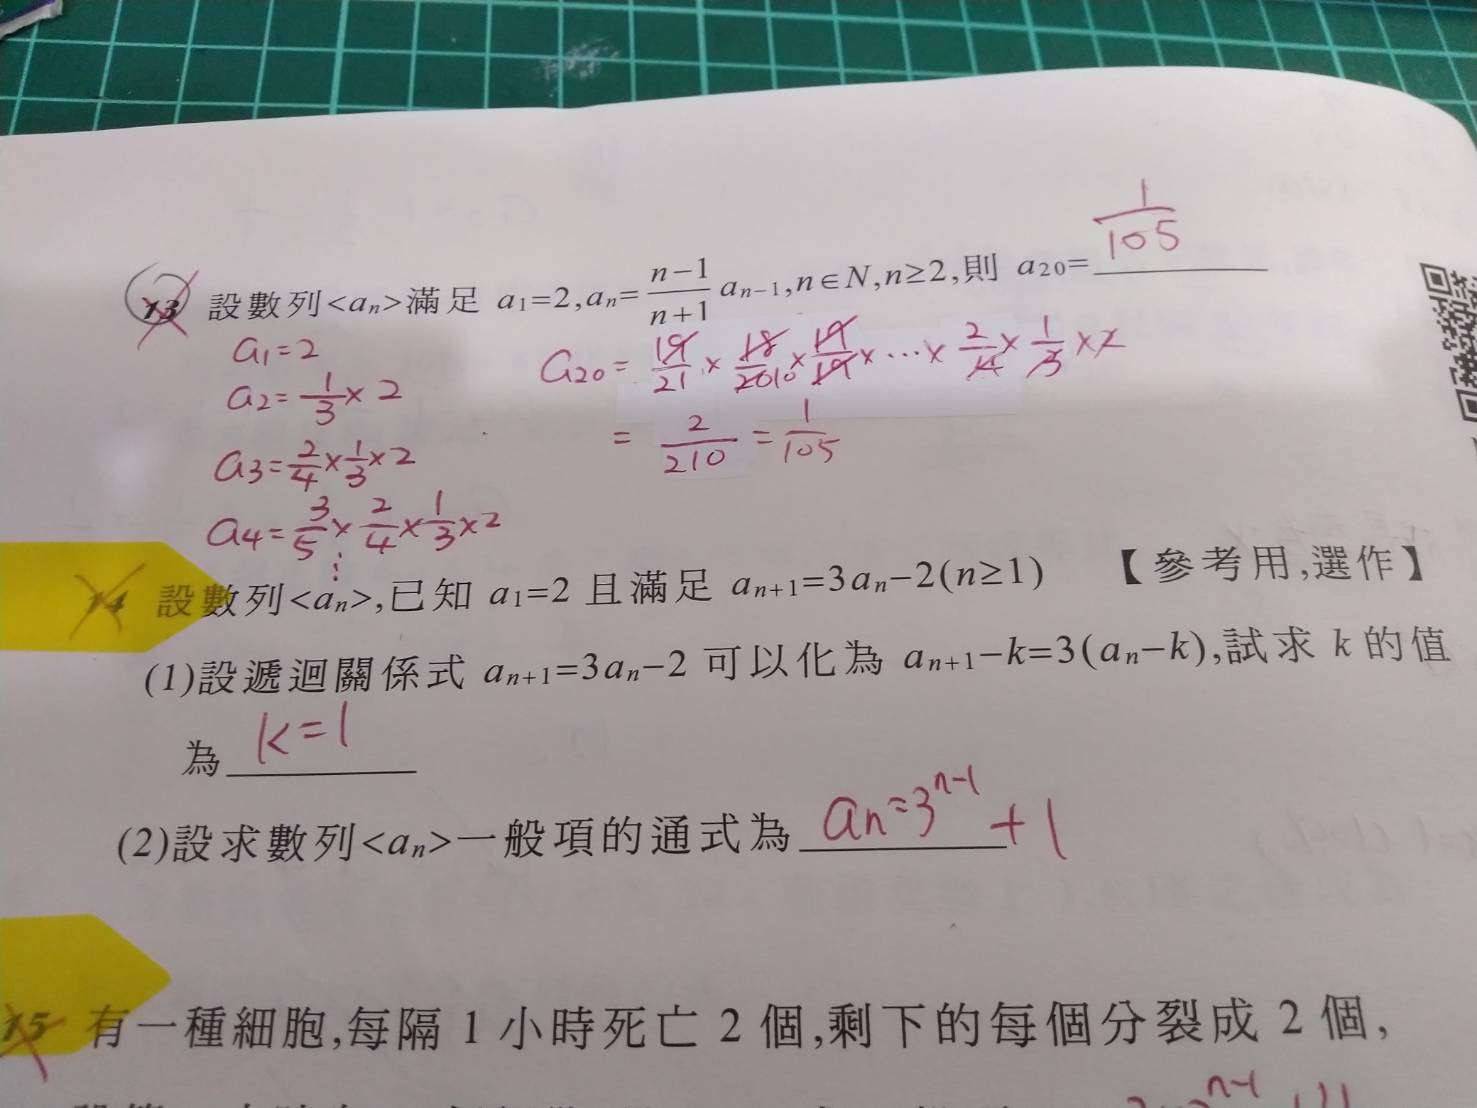 1/105
13 設數列<aₙ>滿足 a₁=2,aₙ=(n−1)/(n+1) aₙ₋₁,n∈N,n≥2,則 a₂₀=
a₁=2
a₂=1/3×2
a₃=2/4×1/3×2
a₄=3/5×2/4×1/3×2
⋮
a₂₀=19/21×18/20 10×17/19×⋯×2/4×1/3×2
=2/210=1/105
14 設數列<aₙ>,已知 a₁=2 且滿足 aₙ₊₁=3aₙ−2(n≥1) 【參考用,選作】
(1)設遞迴關係式 aₙ₊₁=3aₙ−2 可以化為 aₙ₊₁−k=3(aₙ−k),試求 k 的值
為 k=1
(2)設求數列<aₙ>一般項的通式為 aₙ=3ⁿ⁻¹+1
15 有一種細胞,每隔 1 小時死亡 2 個,剩下的每個分裂成 2 個,